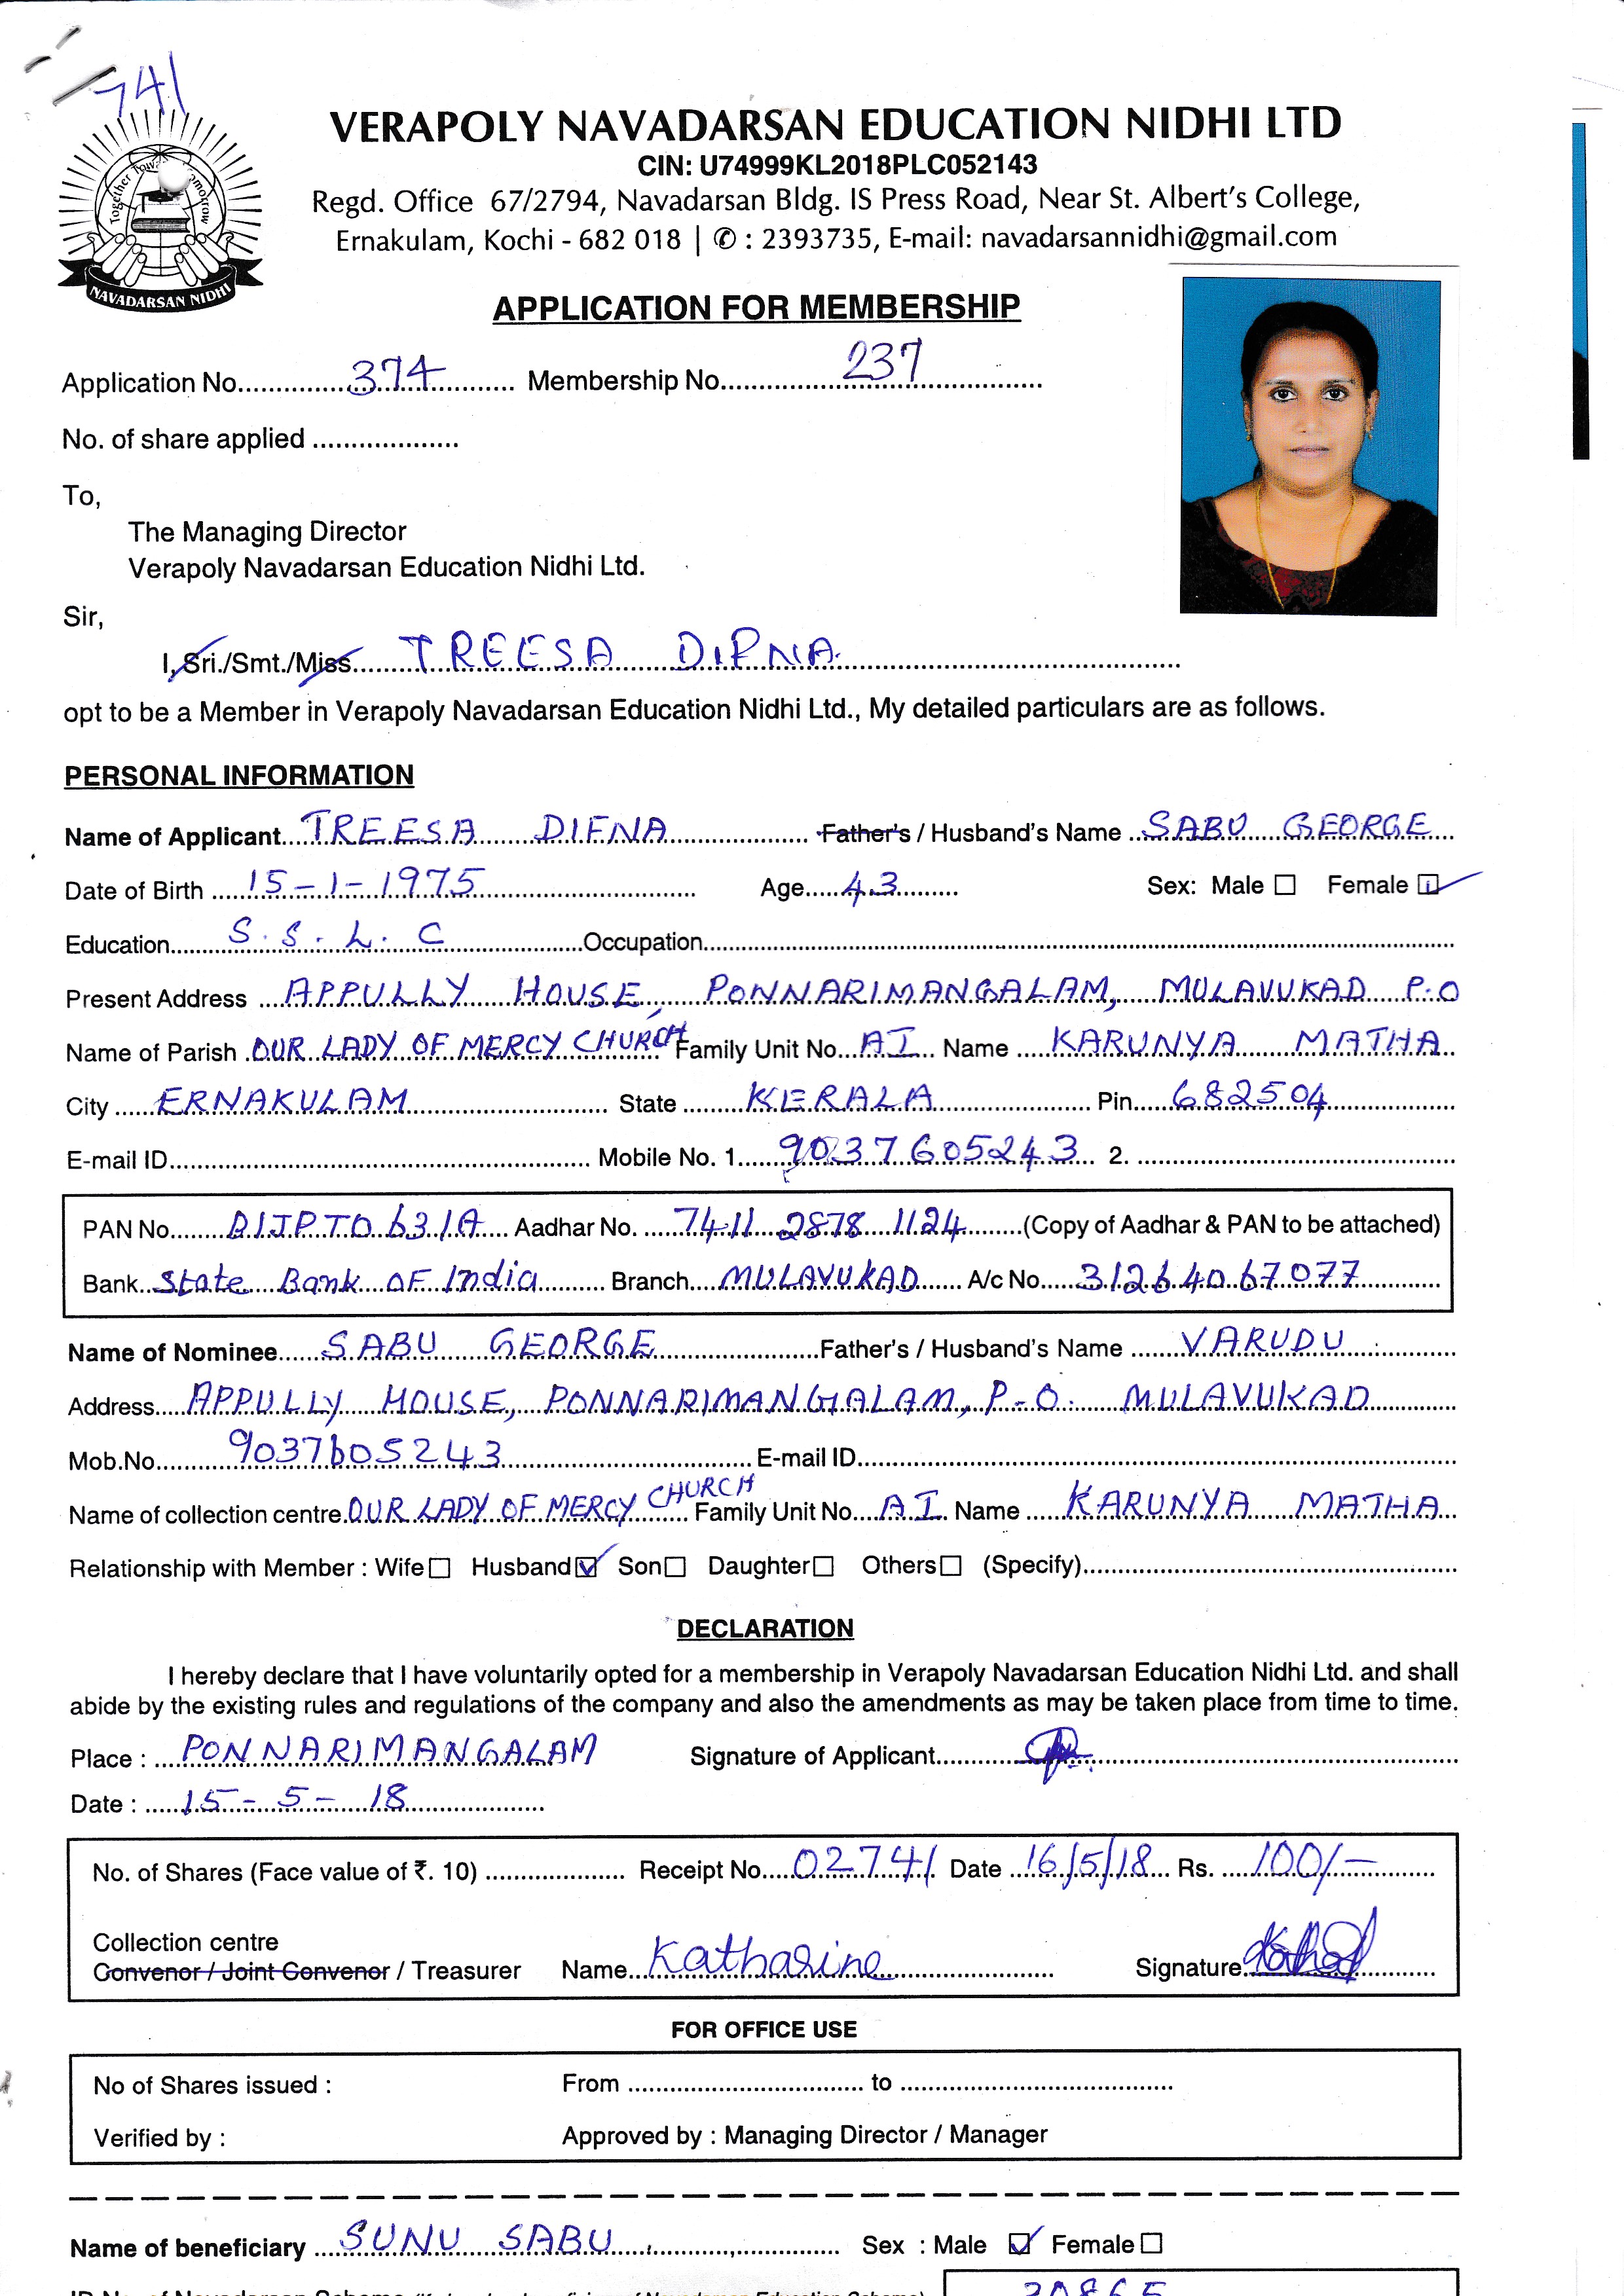 741
Together Towards Tomorrow
NAVADARSAN NIDHI
VERAPOLY NAVADARSAN EDUCATION NIDHI LTD
CIN: U74999KL2018PLC052143
Regd. Office 67/2794, Navadarsan Bldg. IS Press Road, Near St. Albert's College,
Ernakulam, Kochi - 682 018 | ✆ : 2393735, E-mail: navadarsannidhi@gmail.com
APPLICATION FOR MEMBERSHIP
Application No. 374 Membership No. 237
No. of share applied
To,
The Managing Director
Verapoly Navadarsan Education Nidhi Ltd.
Sir,
I, Sri./Smt./Miss. TREESA DIFNA
opt to be a Member in Verapoly Navadarsan Education Nidhi Ltd., My detailed particulars are as follows.
PERSONAL INFORMATION
Name of Applicant TREESA DIFNA Father's / Husband's Name SABU GEORGE
Date of Birth 15-1-1975 Age 43 Sex: Male ☐ Female ☑
Education S.S.L.C Occupation
Present Address APPULLY HOUSE, PONNARIMANGALAM, MULAVUKAD P.O
Name of Parish OUR LADY OF MERCY CHURCH Family Unit No. AI Name KARUNYA MATHA
City ERNAKULAM State KERALA Pin 682504
E-mail ID Mobile No. 1. 9037605243 2.
PAN No. BIJPT0631A Aadhar No. 7411 2878 1124 (Copy of Aadhar & PAN to be attached)
Bank State Bank OF India Branch MULAVUKAD A/c No. 31264067077
Name of Nominee SABU GEORGE Father's / Husband's Name VARUDU
Address APPULLY HOUSE, PONNARIMANGALAM, P-O. MULAVUKAD
Mob.No. 9037605243 E-mail ID
Name of collection centre OUR LADY OF MERCY CHURCH Family Unit No. AI Name KARUNYA MATHA
Relationship with Member : Wife ☐ Husband ☑ Son ☐ Daughter ☐ Others ☐ (Specify)
DECLARATION
I hereby declare that I have voluntarily opted for a membership in Verapoly Navadarsan Education Nidhi Ltd. and shall
abide by the existing rules and regulations of the company and also the amendments as may be taken place from time to time.
Place : PONNARIMANGALAM Signature of Applicant
Date : 15-5-18
No. of Shares (Face value of ₹. 10) Receipt No. 02741 Date 16/5/18 Rs. 100/-
Collection centre
Convenor / Joint Convenor / Treasurer Name Katharine Signature
FOR OFFICE USE
No of Shares issued : From to
Verified by : Approved by : Managing Director / Manager
Name of beneficiary SUNU SABU Sex : Male ☑ Female ☐